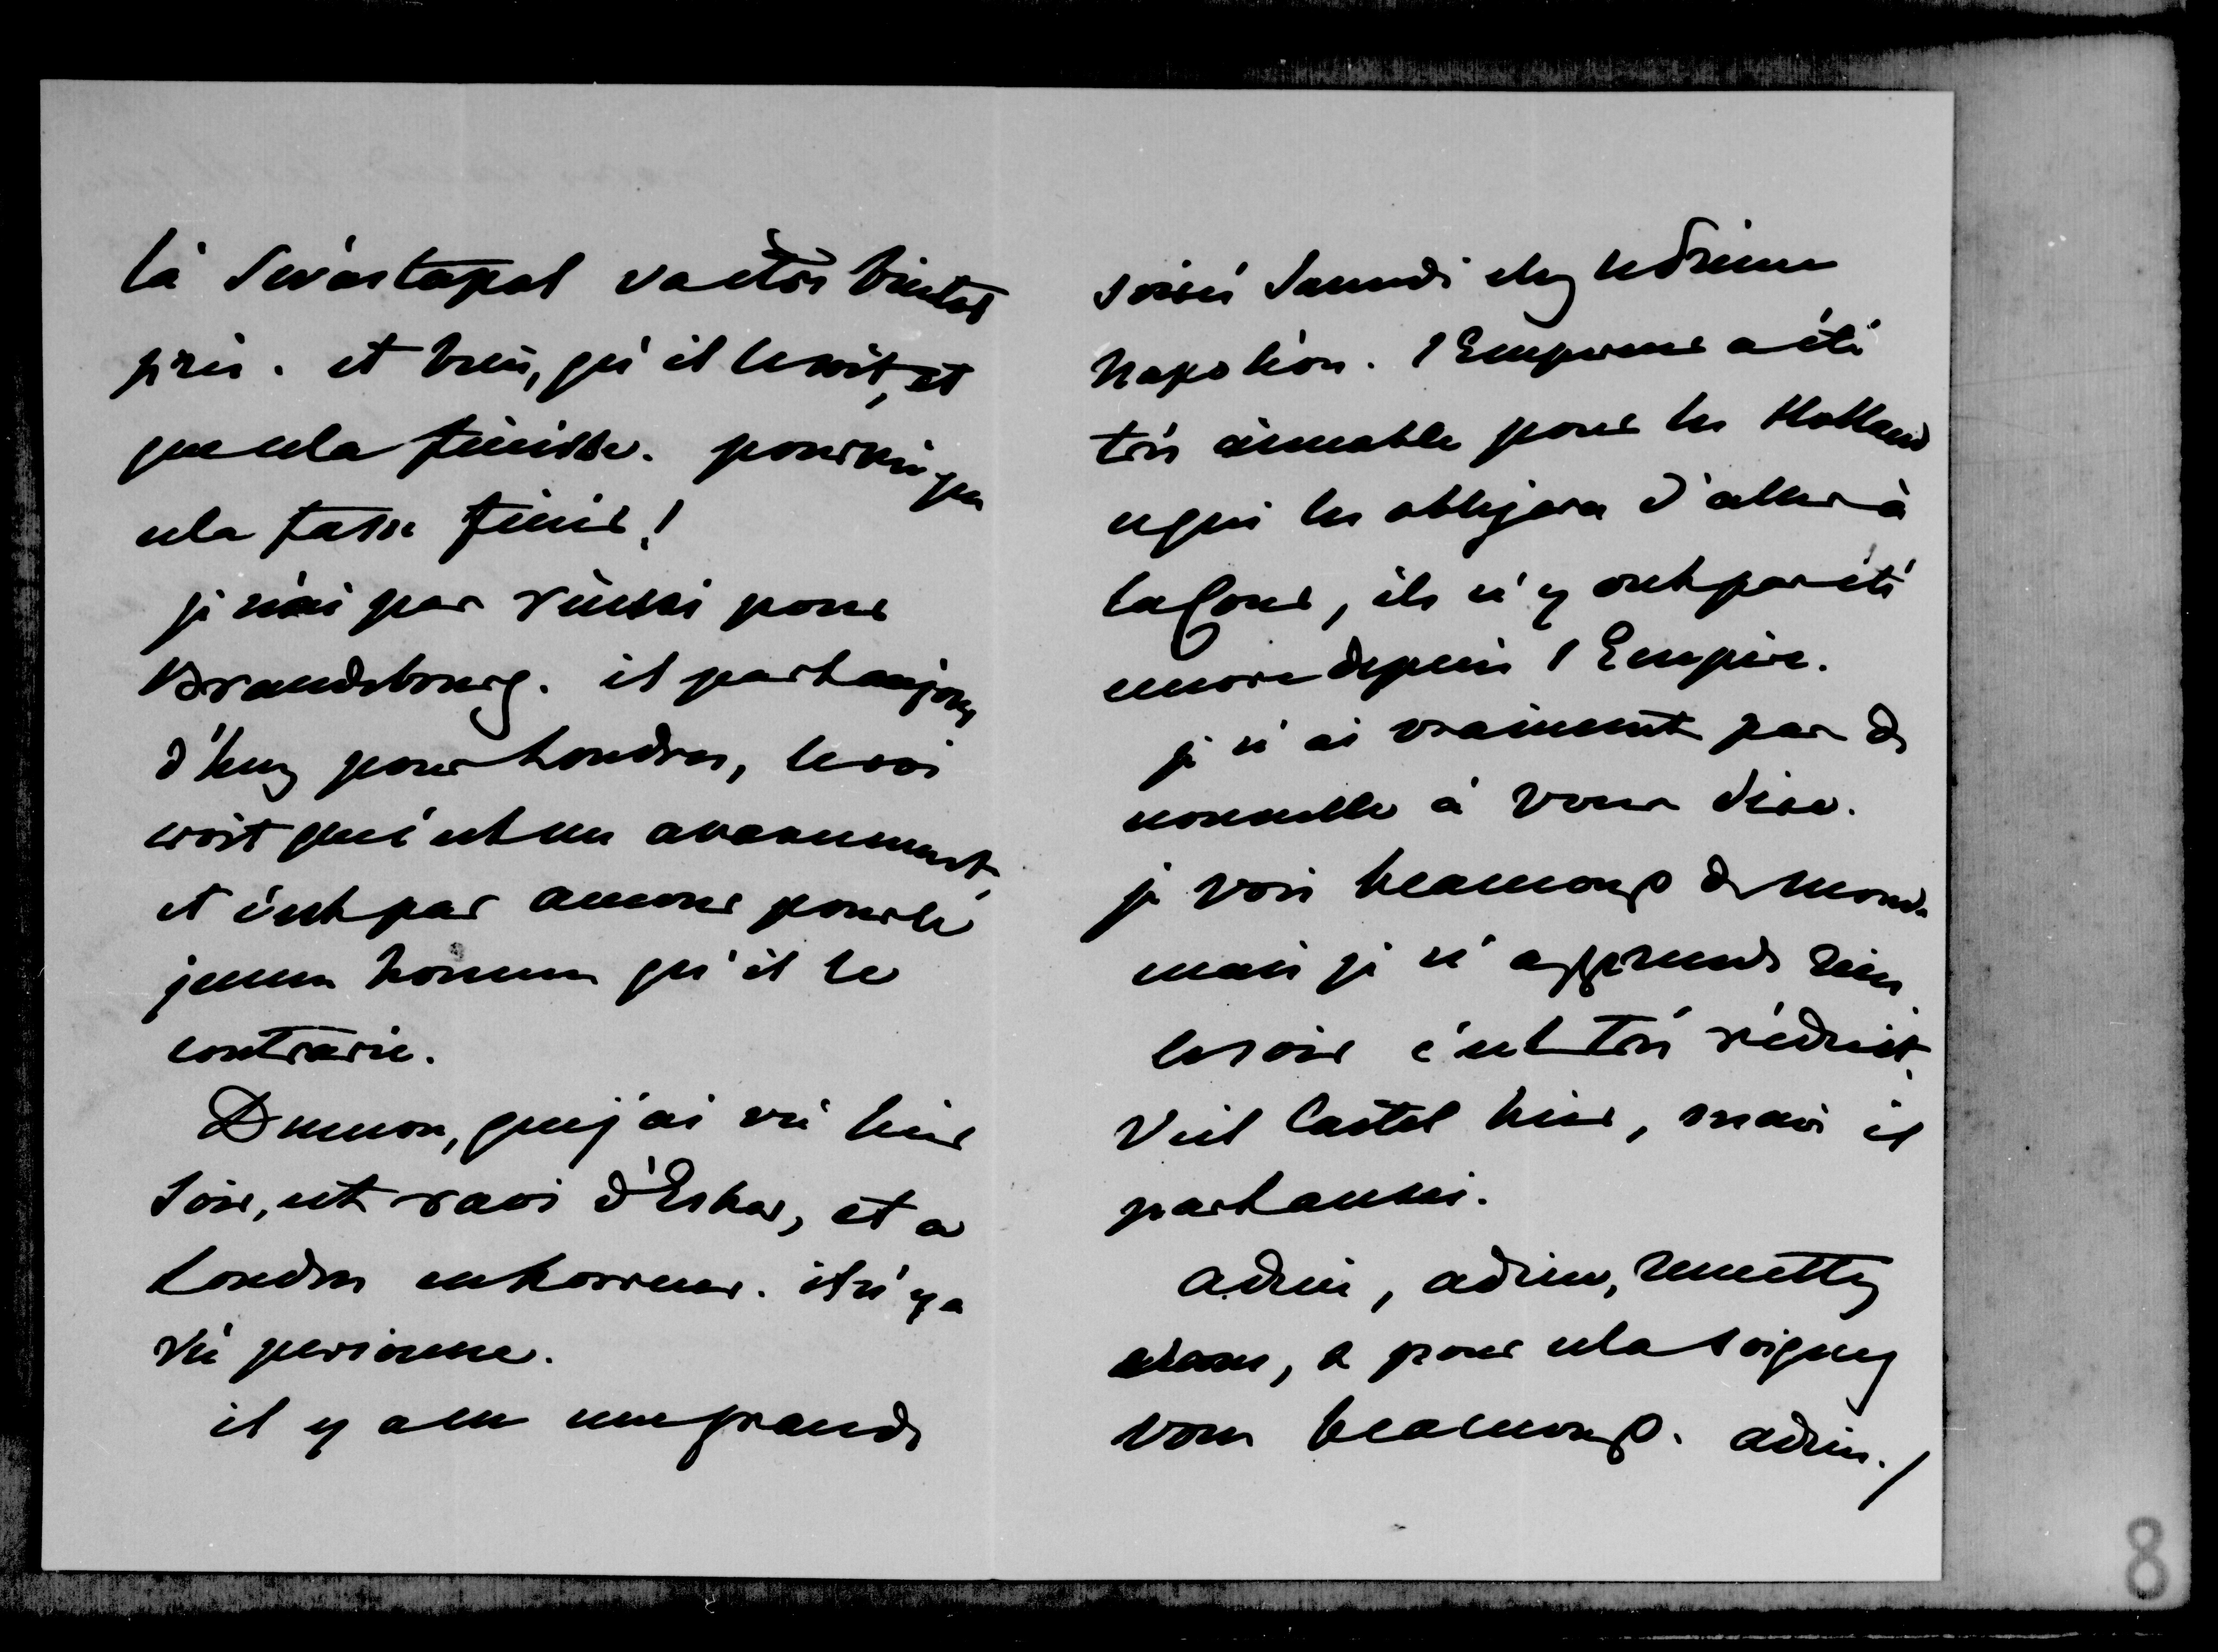 là Sévastapol va être bientot
pris. et bien, qu'il le soit, et
que cela finisse. pourvu que
cela fasse finir!
je n'ai pas réussi pour
Brandebourg. il part aujour
d'huy pour Londres, le roi
croit que c'est un avancement,
et c'est par amour pour le
jeune homme qu'il le
contrarie.
Dumon, que j'ai vu hier
soir, est ravi d'Esher, et a
Londres en horreur. il n'y a
vu personne.
il y a eu une grande
soirée Samedi chez le Prince
Napoléon. l'Empereur a été
très aimable pour les Holland
ce qui les obligera d'aller à
la Cour, ils n'y ont pas été
encore depuis l'Empire.
je n'ai vraiment pas de
nouvelle à vous dire.
je vois beaucoup de monde
mais je n'apprends rien.
le soir c'est très réduit.
Viel Castel hier, mais il
part aussi.
adieu, adieu, remettez
vous, & pour cela soignez
vous beaucoup. adieu./
8